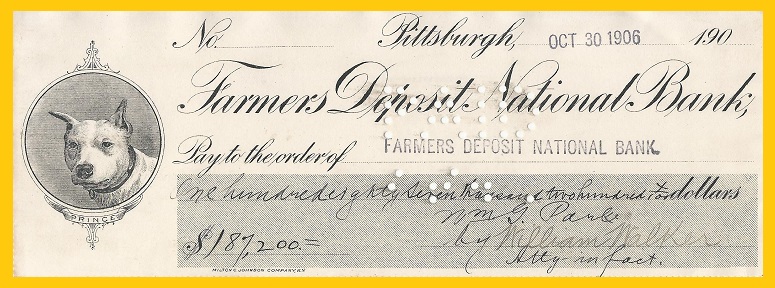 No. Pittsburgh, OCT 30 1906 190
Farmers Deposit National Bank,
Pay to the order of FARMERS DEPOSIT NATIONAL BANK.
One hundred eighty seven thousand two hundred dollars
Wm G. Park
$187,200.= by William Walker
Atty-in fact.
PRINCE
MILTON C. JOHNSON COMPANY, N.Y.